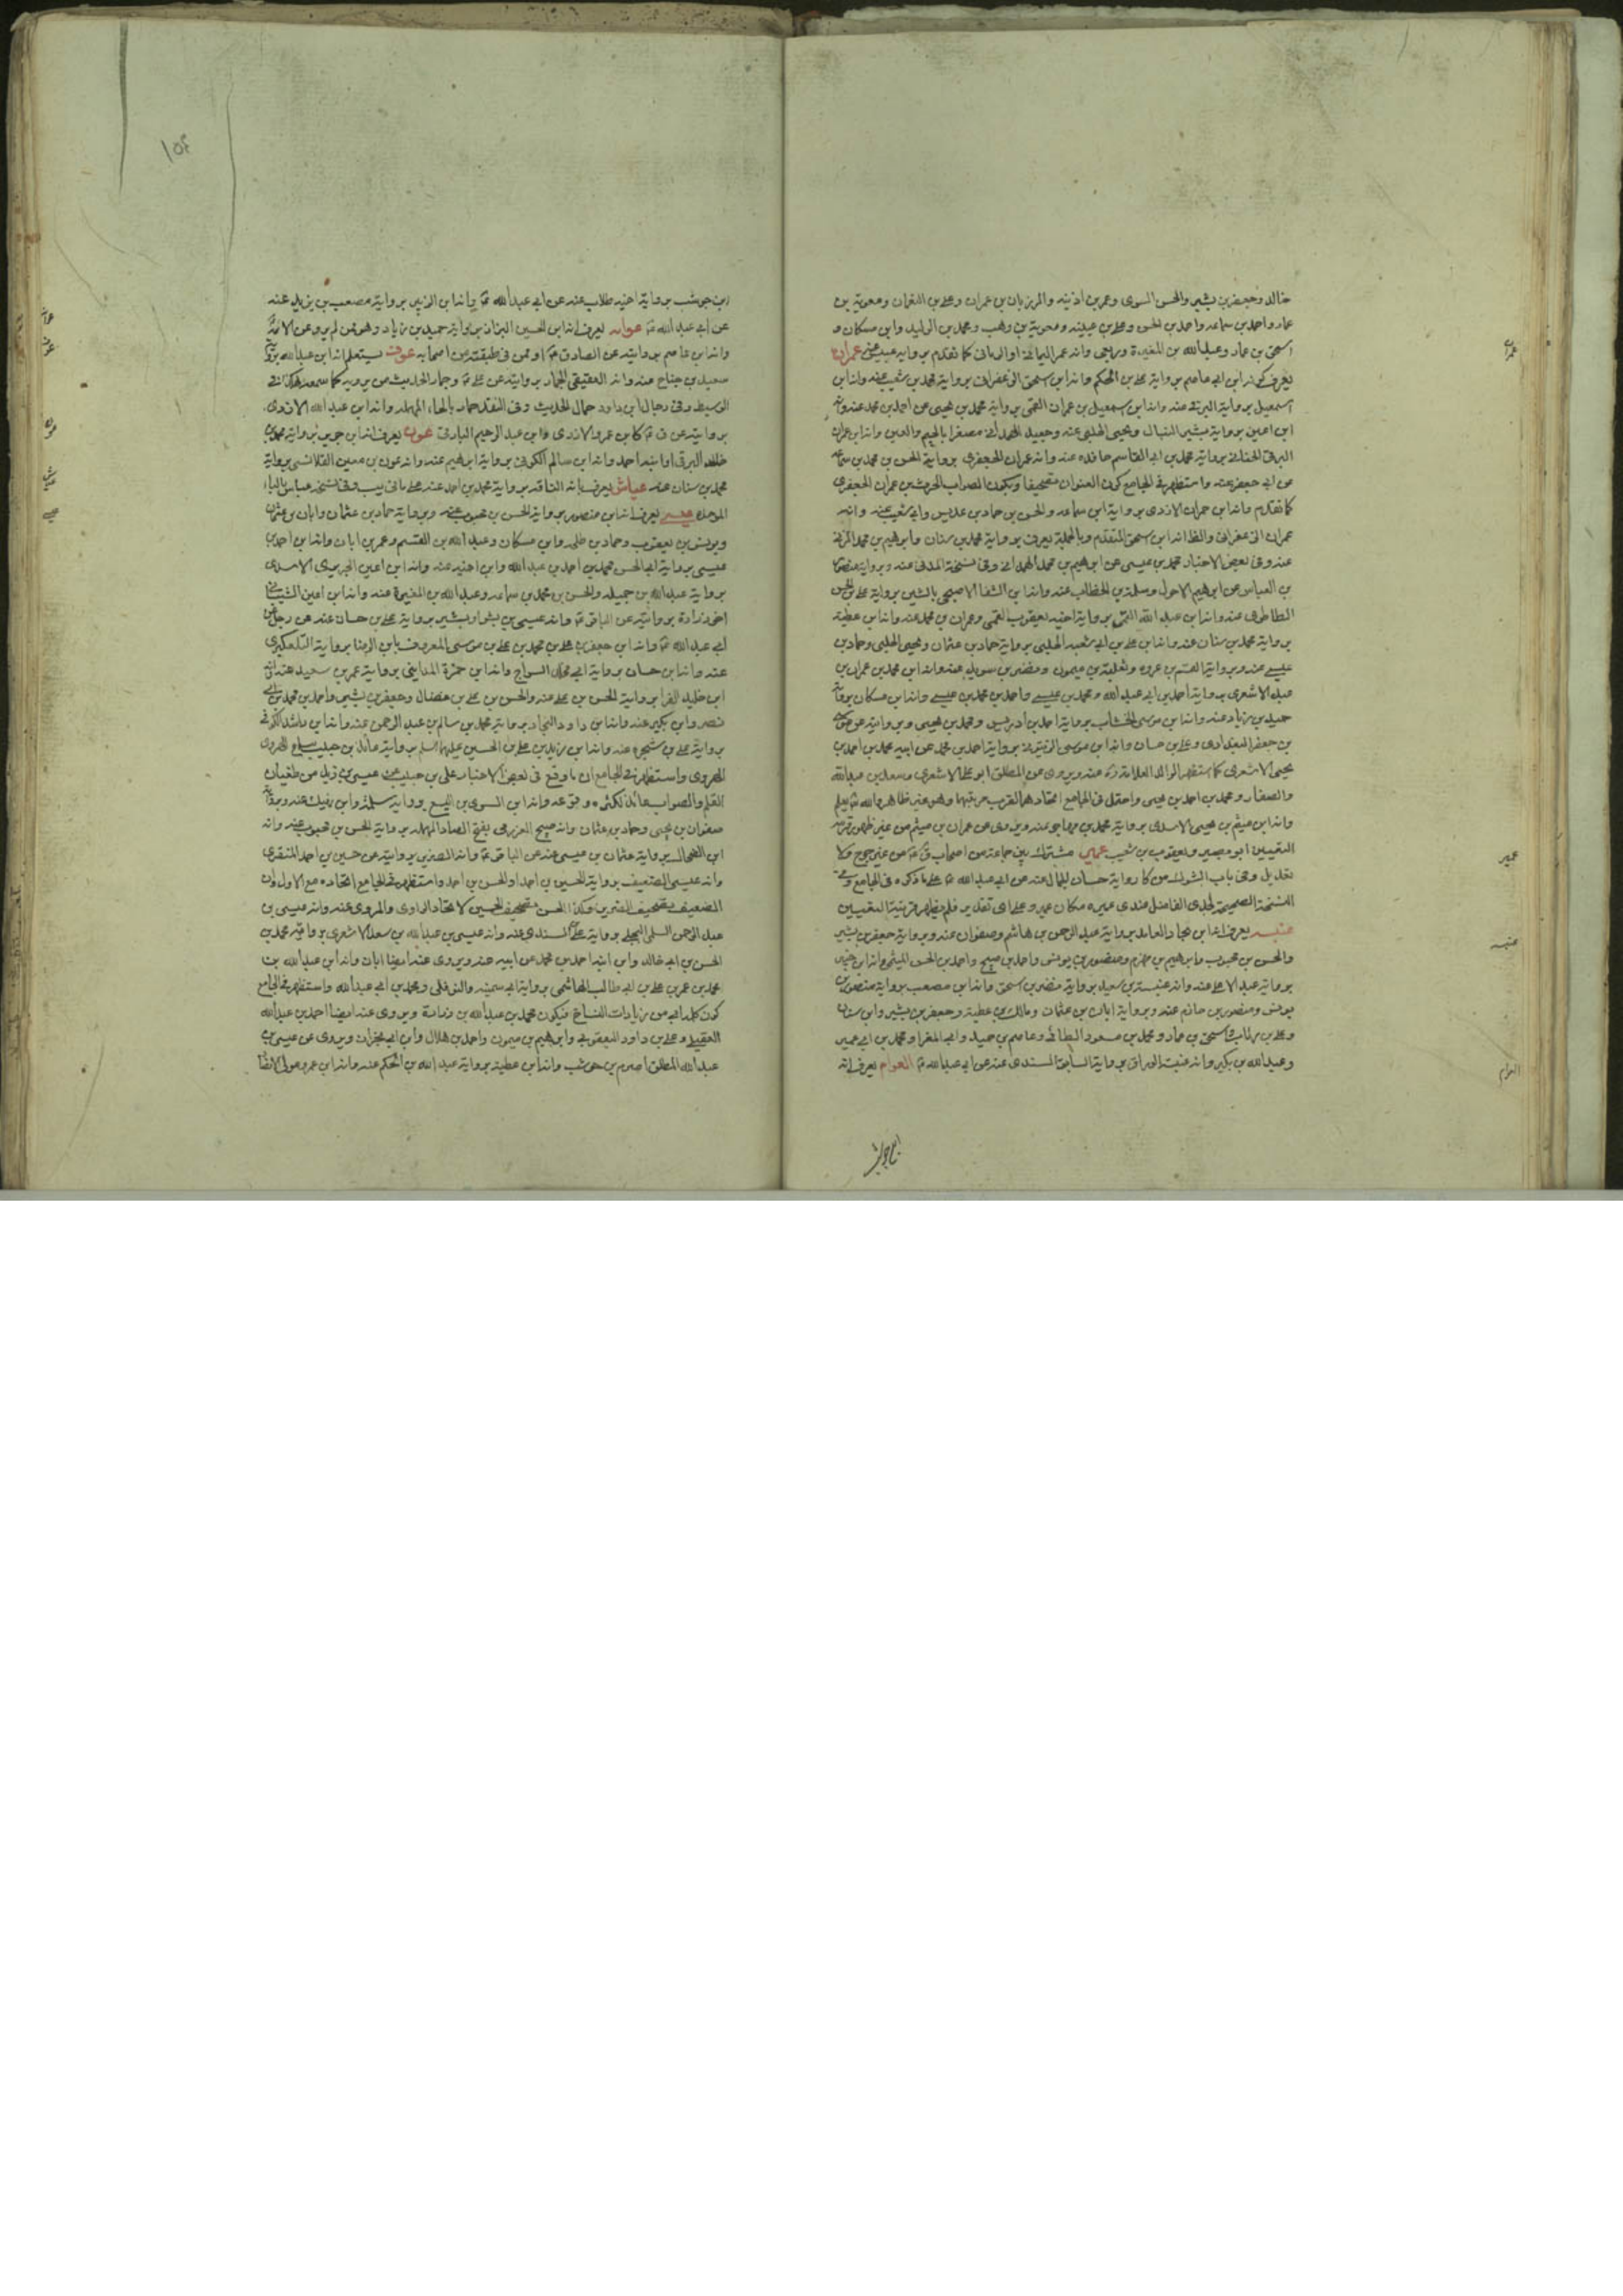 خالد وجعفر بن بشير والحسن السوى وعمر بن اذينه والمرزبان بن عمران وعلي بن النعمان ومعوية بن
عمار واحمد بن سماعه واحمد بن الحسن وعلي بن عيينه ومعوية بن وهب ومحمد بن الوليد وابن مسكان و
اسحق بن عمار وعبد الله بن المغيرة وربعى وانه عمر اليمانى كما تقدم برواية عنه عمران
يعرف كونه ابن ابي عاصم برواية علي بن الحكم وانه ابن اسحق الزعفرانى برواية محمد بن شعيب عنه وانه ابن
اسمعيل برواية البرقى عنه وانه ابن اسمعيل بن عمران القمى برواية محمد بن يحيى عن احمد بن محمد عنه وانه
ابن اعين برواية بشير النبال ويحيى الحلبى عنه وجعيد الهمدانى مصغرا بالجيم والعين وانه ابن عمران
البرقى الجنابى برواية محمد بن ابي القاسم حافده عنه وانه عمران الجعفرى برواية الحسن بن محمد بن سماعه
عن ابي جعفر عنه واستظهر فى الجامع كون العنوان تصحيفا ويكون الصواب الحرث بن عمران الجعفرى
كما تقدم وانه ابن حمران الازدى برواية ابن سماعه والحسن بن حماد بن عديس وابي شعيب عنه وانه
عمران الزعفرانى والظ انه ابن اسحق المتقدم وبالجملة يعرف برواية محمد بن سنان وابرهيم بن محمد المزنى
عنه وفى بعض الاخبار محمد بن عيسى عن ابرهيم بن محمد الهمدانى وفى نسخة المدنى عنه وبرواية
بن العباس عن ابرهيم الاحول وسلمة بن الخطاب عنه وانه ابن الشفا الاصبحى بالشين برواية علي بن الحسن
الطاطرى عنه وانه ابن عبد الله القمى برواية اخيه يعقوب القمى وعمران بن محمد عنه وانه ابن عطية
برواية محمد بن سنان عنه وانه ابن علي بن ابي شعبه الحلبى برواية حماد بن عثمان ويحيى الحلبى وحماد بن
عيسى عنه وبرواية القسم بن عروه وثعلبة بن ميمون ونضر بن سويد عنه وانه ابن محمد بن عمران بن
عبد الله الاشعرى برواية احمد بن ابي عبد الله ومحمد بن عيسى واحمد بن محمد بن عيسى وانه ابن مسكان برواية
حميد بن زياد عنه وانه ابن موسى الخشاب برواية احمد بن ادريس ومحمد بن يحيى وبروايته عن
بن جعفر البغدادى وعلي بن حسان وانه ابن موسى الزيتونى برواية احمد بن محمد عن ابيه محمد بن احمد بن
يحيى الاشعرى كما استظهر الوالد العلامة ره عنه ويروى عن المطلق ابو علي الاشعرى وسعد بن عبد الله
والصفار ومحمد بن احمد بن يحيى واحتمل فى الجامع اتحادهما لقرب مرتبتهما وهو غير ظاهر والله يعلم
وانه ابن ميثم بن يحيى الاسدى برواية محمد بن مهاجر عنه ويروى عن عمران بن ميثم من غير ظهور قرينة
التعيين ابو بصير ويعقوب بن شعيب عمير مشترك بين جماعة من اصحاب من غير جرح ولا
تعديل وفى باب الشوك من كا رواية حسان الجمال عنه عن ابي عبد الله ع على ما ذكره فى الجامع وفى
النسخة الصحيحة لجدى الفاضل عندى عميره مكان عمير وعلى اى تقدير فلم يظهر قرينة التعيين
عنبسه يعرف انه ابن بجاد العابد برواية عبد الرحمن بن هاشم وصفوان عنه وبرواية جعفر بن بشير
والحسن بن محبوب وابرهيم بن مهزم ومنصور بن يونس واحمد بن صبيح واحمد بن الحسن الميثمى وانه ابن
برواية عبد الاعلى عنه وانه عنبسة بن سعيد برواية منصور بن اسحق وانه ابن مصعب برواية منصور بن
يونس ومنصور بن حازم عنه وبرواية ابان بن عثمان ومالك بن عطية وجعفر بن بشير وابن سنان
وعلي بن رئاب واسحق بن عمار ومحمد بن مسعود الطائى وعاصم بن حميد وابي المغرا ومحمد بن ابي عمير
وعبد الله بن بكير وانه عنبسة الوراق برواية السابق السندى عنه عن ابي عبد الله ع العوام يعرف انه
ابن حوشب
عمران
عمير
عنبسه
العوام
١٥٤
ابن حوشب برواية اخيه طلاب عنه عن ابي عبد الله ع وانه ابن الزبير برواية مصعب بن يزيد عنه
عن ابي عبد الله ع عوانه يعرف انه ابن الحسين البزاز برواية حميد بن زياد وهو ممن لم يرو عن الائمة
وانه ابن عاصم بروايته عن الصادق ع او ممن فى طبقته من اصحابه عوف يستعلم انه ابن عبد الله برواية
سعيد بن جناح عنه وانه العقيقى الجمار بروايته عن علي ع وجمار الحديث من يرويه كما سمعه هكذا فى
الوسيط وفى رجال ابن داود حمال الحديث وفى النقد حمار بالحاء المهملة وانه ابن عبد الله الازدى
بروايته عن ق ع كابن عمرو الازدى وابن عبد الرحيم البارقى عون يعرف انه ابن جرير برواية محمد بن
خالد البرقى او ابنه احمد وانه ابن سالم الكوفى برواية ابرهيم عنه وانه عون بن معين القلانسى برواية
محمد بن سنان عنه عياش يعرف بانه الناقد برواية محمد بن احمد عنه على ما فى يب وفى نسخة عباس بالباء
الموحدة عيسى يعرف انه ابن منصور برواية الحسن بن محبوب عنه وبرواية حماد بن عثمان وابان بن عثمان
ويونس بن يعقوب وحماد بن طلحه وابن مسكان وعبد الله بن القسم وعمر بن ابان وانه ابن احمد بن
عيسى برواية ابي الحسن محمد بن احمد بن عبد الله وابن اخيه عنه وانه ابن اعين الجريرى الاسدى
برواية عبد الله بن جميله والحسن بن محمد بن سماعه وعبد الله بن المغيرة عنه وانه ابن اعين الشيبانى
اخو زرارة بروايته عن الباقر ع وانه عيسى بن بشر او بشير برواية علي بن حسان عنه عن رجل عن
ابي عبد الله ع وانه ابن جعفر بن علي بن محمد بن علي بن موسى المعروف بابن الرضا برواية التلعكبرى
عنه وانه ابن حسان برواية ابي السراج وانه ابن حمزة المداينى برواية عمر بن سعيد عنه
ابن خليد الفرا برواية الحسن بن علي عنه والحسن بن علي بن فضال وجعفر بن بشير واحمد بن محمد بن ابي
نصر وابن بكير عنه وانه ابن داود النجار برواية محمد بن سالم بن عبد الرحمن عنه وانه ابن راشد الكوفى
برواية علي بن شجره عنه وانه ابن زيد بن علي بن الحسين عليهما السلم برواية عائذ بن حبيب
الهروى واستظهر فى الجامع ان ما وقع فى بعض الاخبار علي بن حبيب عن عيسى بن زيد من طغيان
القلم والصواب عائذ لكثرة وقوعه وانه ابن السرى بن اليسع برواية سلمة وابن رفيك عنه وبرواية
صفوان بن يحيى وحماد بن عثمان وانه صبيح العزرمى بفتح الصاد المهملة برواية الحسن بن محبوب عنه وانه
ابن الضحاك برواية عثمان بن عيسى عنه عن الباقر ع وانه الضرير بروايته عن حسين بن احمد المنقرى
وانه عيسى الضعيف برواية الحسين بن احمد او الحسن بن احمد واستظهر فى الجامع اتحاده مع الاول وان
الضعيف تصحيف الضرير وكذا الحسن تصحيف الحسين لاتحاد الراوى والمروى عنه وانه عيسى بن
عبد الرحمن السلمى البجلى برواية علي السندى عنه وانه عيسى بن عبد الله بن سعد الاشعرى برواية محمد بن
الحسن بن ابي خالد وابن ابنه احمد بن محمد عن ابيه عنه ويروى عنه ايضا ابان وانه ابن عبد الله بن
محمد بن عمر بن علي بن ابي طالب الهاشمى برواية ابي سمينه والنوفلى ومحمد بن ابي عبد الله واستظهر فى الجامع
كون كلمة ابي من زيادات النساخ فيكون محمد بن عبد الله بن زرارة ويروى عنه ايضا احمد بن عبد الله
العقيلى وعلي بن داود اليعقوبى وابرهيم بن ميمون واحمد بن هلال وابن ابي نجران ويروى عن عيسى بن
عبد الله المطلق اصرم بن حوشب وانه ابن عطية برواية عبد الله بن الحكم عنه وانه ابن عمرو مولى الانصار
عوانه
عوف
عون
عياش
عيسى